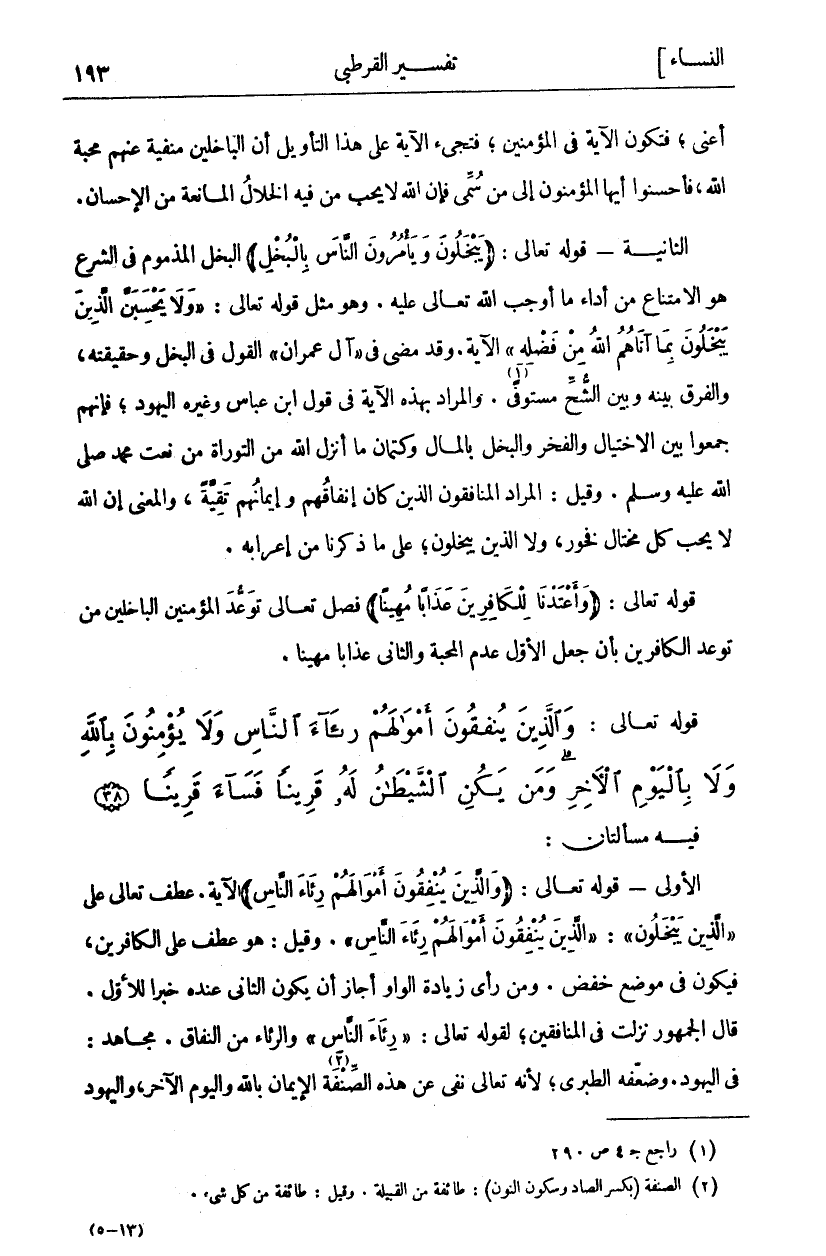 النساء]
تفسير القرطبى
١٩٣
أعنى ؛ فتكون الآية فى المؤمنين ؛ فتجىء الآية على هذا التأويل أن الباخلين منفية عنهم محبة
الله ، فأحسنوا أيها المؤمنون إلى من سُمِّى فإن الله لا يحب من فيه الخلالُ المانعة من الإحسان .
الثانية – قوله تعالى : ﴿يَبْخَلُونَ وَيَأْمُرُونَ النَّاسَ بِالْبُخْلِ﴾ البخل المذموم فى الشرع
هو الامتناع من أداء ما أوجب الله تعالى عليه . وهو مثل قوله تعالى : « وَلَا يَحْسَبَنَّ الَّذِينَ
يَبْخَلُونَ بِمَا آتَاهُمُ اللهُ مِنْ فَضْلِهِ » الآية . وقد مضى فى «آل عمران» القول فى البخل وحقيقته ،
والفرق بينه وبين الشُّحِّ مستوفًى (١) . والمراد بهذه الآية فى قول ابن عباس وغيره اليهود ؛ فإنهم
جمعوا بين الاختيال والفخر والبخل بالمال وكتمان ما أنزل الله من التوراة من نعت محمد صلى
الله عليه وسلم . وقيل : المراد المنافقون الذين كان إنفاقُهم وإيمانُهم تَقِيَّةً ، والمعنى إن الله
لا يحب كل مختال فخور ، ولا الذين يبخلون ؛ على ما ذكرنا من إعرابه .
قوله تعالى : ﴿وَأَعْتَدْنَا لِلْكَافِرِينَ عَذَابًا مُهِينًا﴾ فصل تعالى تَوَعُّدَ المؤمنين الباخلين من
توعد الكافرين بأن جعل الأوّل عدم المحبة والثانى عذابا مهينا .
قوله تعالى : وَٱلَّذِينَ يُنفِقُونَ أَمْوَٰلَهُمْ رِئَآءَ ٱلنَّاسِ وَلَا يُؤْمِنُونَ بِٱللَّهِ
وَلَا بِٱلْيَوْمِ ٱلْآخِرِ ۗ وَمَن يَكُنِ ٱلشَّيْطَٰنُ لَهُۥ قَرِينًا فَسَآءَ قَرِينًا ﴿٣٨﴾
فيه مسألتان :
الأولى – قوله تعالى : ﴿وَالَّذِينَ يُنْفِقُونَ أَمْوَالَهُمْ رِئَاءَ النَّاسِ﴾ الآية . عطف تعالى على
«الَّذِينَ يَبْخَلُونَ» : «الَّذِينَ يُنْفِقُونَ أَمْوَالَهُمْ رِئَاءَ النَّاسِ» . وقيل : هو عطف على الكافرين ،
فيكون فى موضع خفض . ومن رأى زيادة الواو أجاز أن يكون الثانى عنده خبرا للأوّل .
قال الجمهور نزلت فى المنافقين ؛ لقوله تعالى : « رِئَاءَ النَّاسِ » والرئاء من النفاق . مجاهد :
فى اليهود . وضعّفه الطبرى ؛ لأنه تعالى نفى عن هذه الصِّنْفَة (٢) الإيمان بالله واليوم الآخر ، واليهود
(١) راجع جـ ٤ ص ٢٩٠
(٢) الصنفة (بكسر الصاد وسكون النون) : طائفة من القبيلة . وقيل : طائفة من كل شىء .
(١٣–٥)